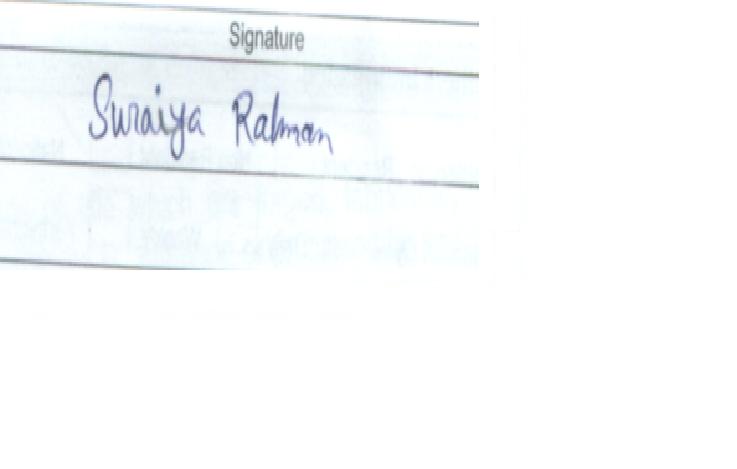 Signature
Suraiya Rahman